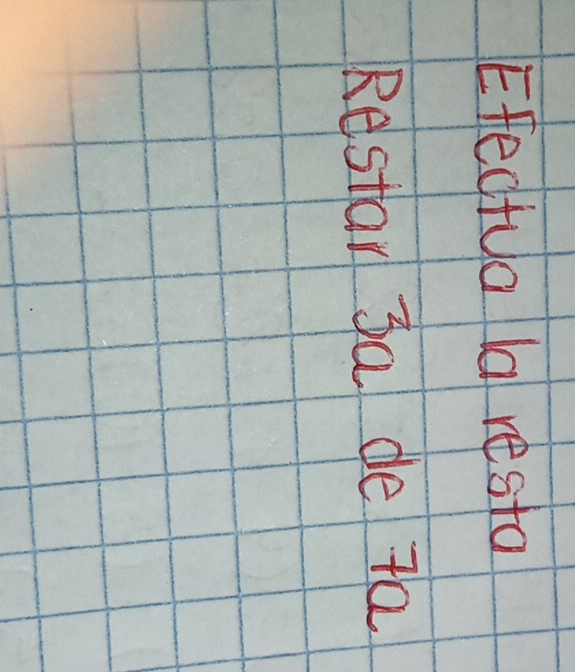 Efectua la resta
Restar 3a de 7a